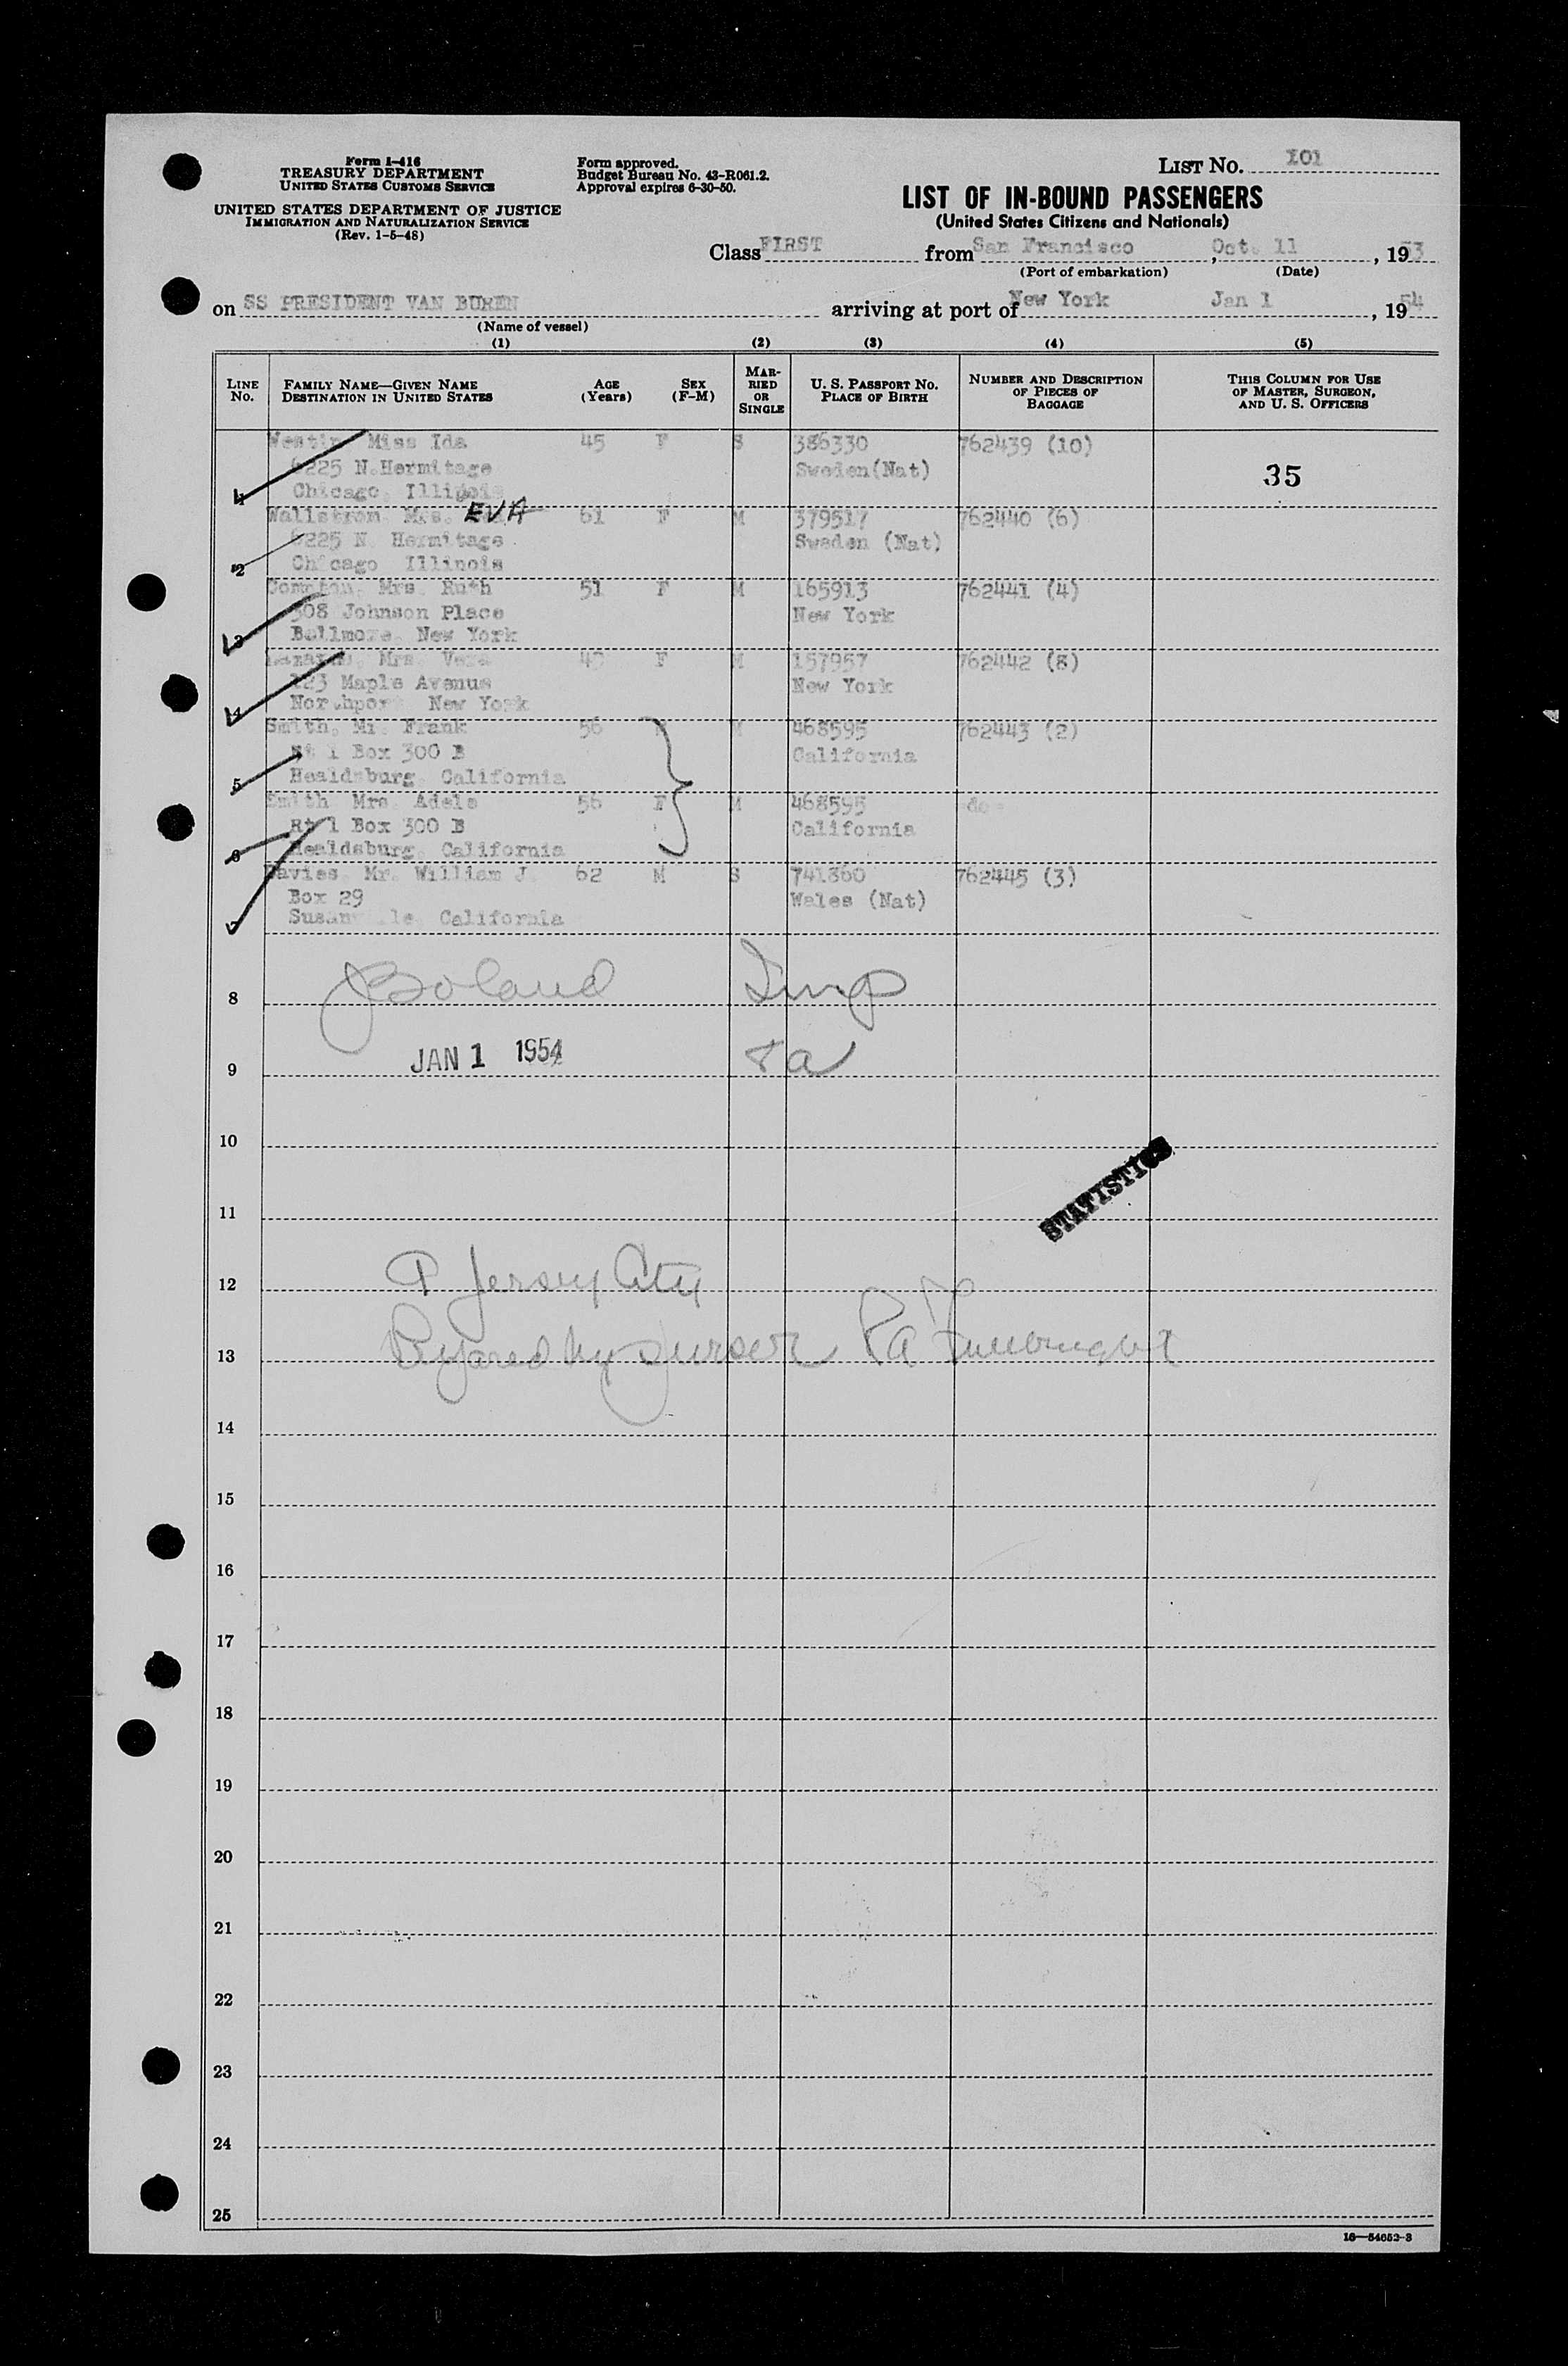 Form I-416
TREASURY DEPARTMENT
UNITED STATES CUSTOMS SERVICE
UNITED STATES DEPARTMENT OF JUSTICE
IMMIGRATION AND NATURALIZATION SERVICE
(Rev. 1-5-48)
Form approved.
Budget Bureau No. 43-R061.2.
Approval expires 6-30-50.
LIST NO. 101
LIST OF IN-BOUND PASSENGERS
(United States Citizens and Nationals)
Class FIRST from San Francisco, Oct. 11, 1953
(Port of embarkation) (Date)
on SS PRESIDENT VAN BUREN arriving at port of New York Jan 1, 1954
(Name of vessel)
(1) (2) (3) (4) (5)
LINE NO. FAMILY NAME—GIVEN NAME DESTINATION IN UNITED STATES AGE (Years) SEX (F-M) MARRIED OR SINGLE U. S. PASSPORT NO. PLACE OF BIRTH NUMBER AND DESCRIPTION OF PIECES OF BAGGAGE THIS COLUMN FOR USE OF MASTER, SURGEON, AND U. S. OFFICERS
Miss Ida 45 F S 386330 762439 (10)
6225 N.Hermitage Sweden(Nat) 35
1 Chicago, Illinois
Wallstrom Mrs. EVA 61 F M 379517 762440 (6)
6225 N. Hermitage Sweden (Nat)
2 Chicago Illinois
Compton, Mrs. Ruth 51 F M 165913 762441 (4)
308 Johnson Place New York
3 Bellmore, New York
Mrs. Vera F M 157957 762442 (8)
123 Maple Avenue New York
4 Northport New York
Smith, Mr. Frank 56 M M 468595 762443 (2)
Rt 1 Box 300 B California
5 Healdsburg, California
Smith Mrs. Adele 56 F M 468595 -do-
Rt 1 Box 300 B California
6 Healdsburg, California
Davies, Mr. William J. 62 M S 741860 762445 (3)
Box 29 Wales (Nat)
7 Susanville, California
8 JBoland Imp
9 JAN 1 1954
10
11 STATISTICS
12 P Jersey City
13 Prepared by purser
14
15
16
17
18
19
20
21
22
23
24
25
16—54652-3